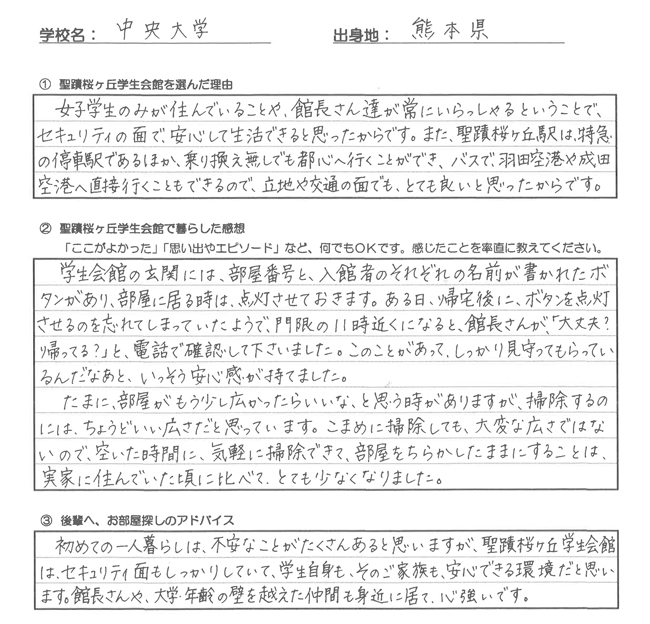 学校名： 中央大学 出身地： 熊本県
① 聖蹟桜ヶ丘学生会館を選んだ理由
女子学生のみが住んでいることや、館長さん達が常にいらっしゃるということで、
セキュリティの面で、安心して生活できると思ったからです。また、聖蹟桜ヶ丘駅は、特急
の停車駅であるほか、乗り換え無しでも都心へ行くことができ、バスで、羽田空港や成田
空港へ直接行くこともできるので、立地や交通の面でも、とても良いと思ったからです。
② 聖蹟桜ヶ丘学生会館で暮らした感想
「ここがよかった」「思い出やエピソード」など、何でもOKです。感じたことを率直に教えてください。
学生会館の玄関には、部屋番号と、入館者のそれぞれの名前が書かれたボ
タンがあり、部屋に居る時は、点灯させておきます。ある日、帰宅後に、ボタンを点灯
させるのを忘れてしまっていたようで、門限の11時近くになると、館長さんが、「大丈夫?
帰ってる?」と、電話で確認して下さいました。このことがあって、しっかり見守ってもらってい
るんだなあと、いっそう安心感が持てました。
たまに、部屋がもう少し広かったらいいな、と思う時がありますが、掃除するの
には、ちょうどいい広さだと思っています。こまめに掃除しても、大変な広さではな
いので、空いた時間に、気軽に掃除できて、部屋をちらかしたままにすることは、
実家に住んでいた頃に比べて、とても少なくなりました。
③ 後輩へ、お部屋探しのアドバイス
初めての一人暮らしは、不安なことがたくさんあると思いますが、聖蹟桜ヶ丘学生会館
は、セキュリティ面もしっかりしていて、学生自身も、そのご家族も、安心できる環境だと思い
ます。館長さんや、大学・年齢の壁を越えた仲間も身近に居て、心強いです。